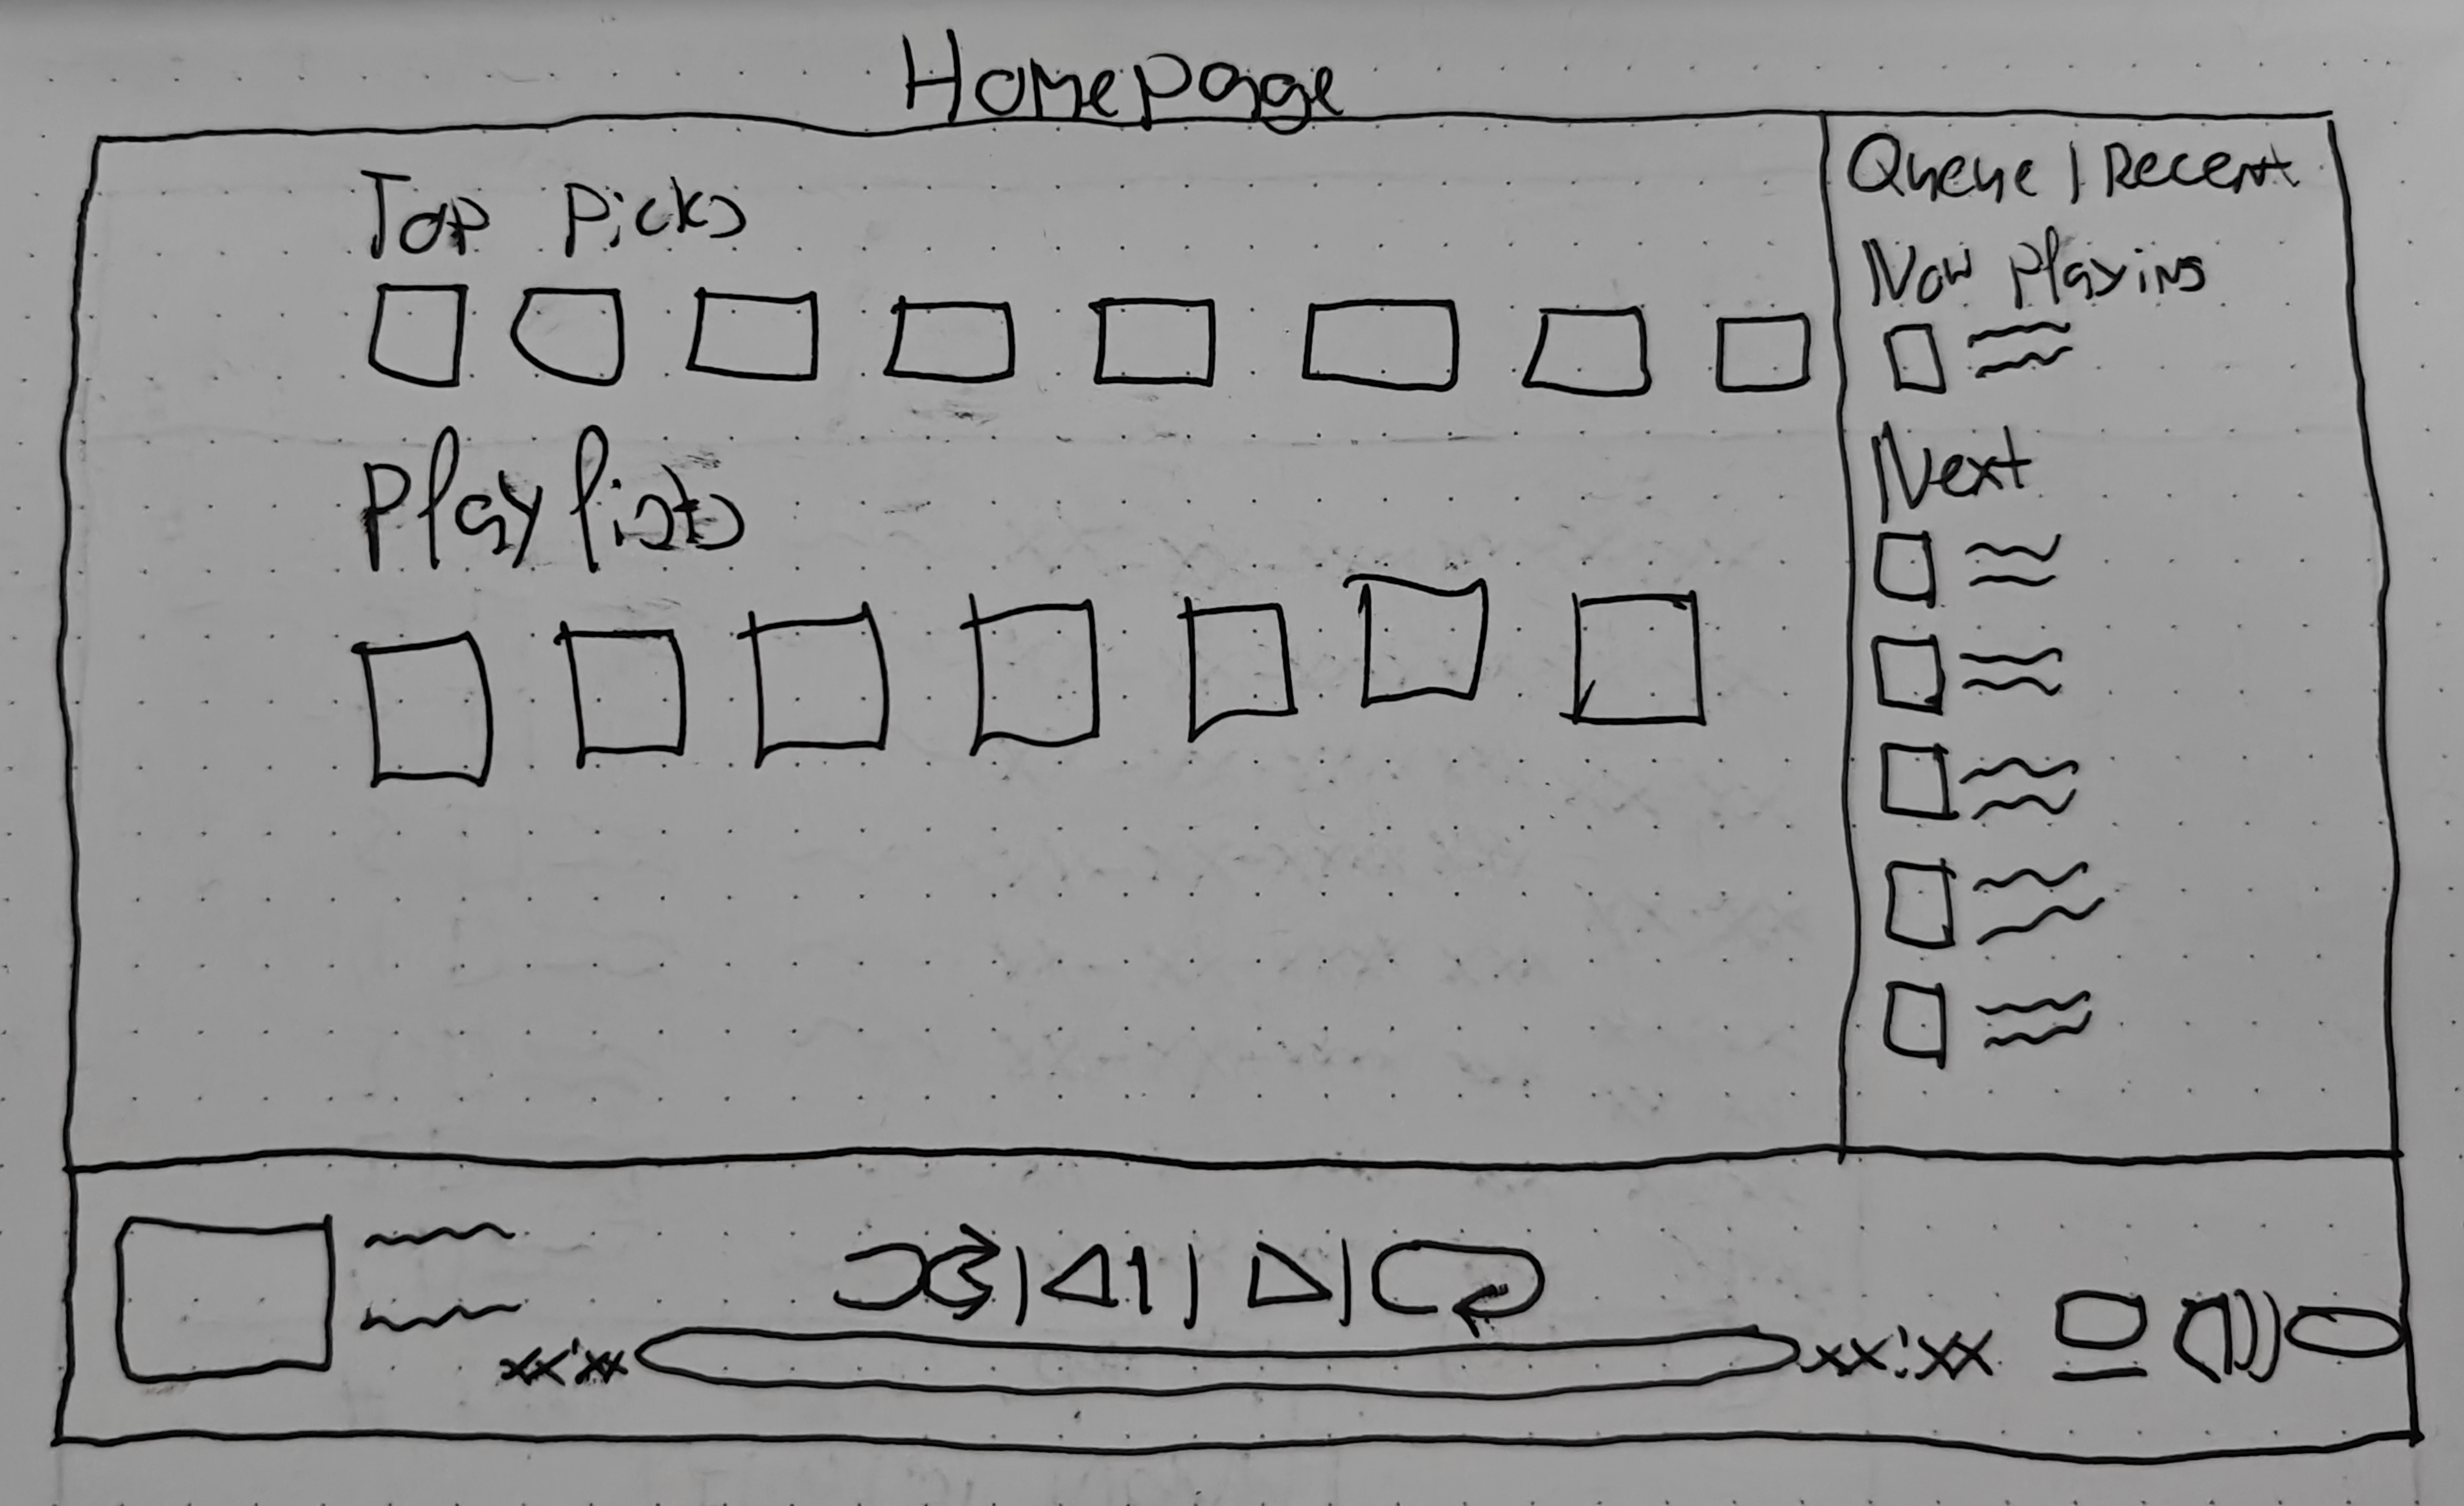 Homepage
Top Picks
Playlists
Queue | Recent
Now Playing
Next
xx:xx
xx:xx